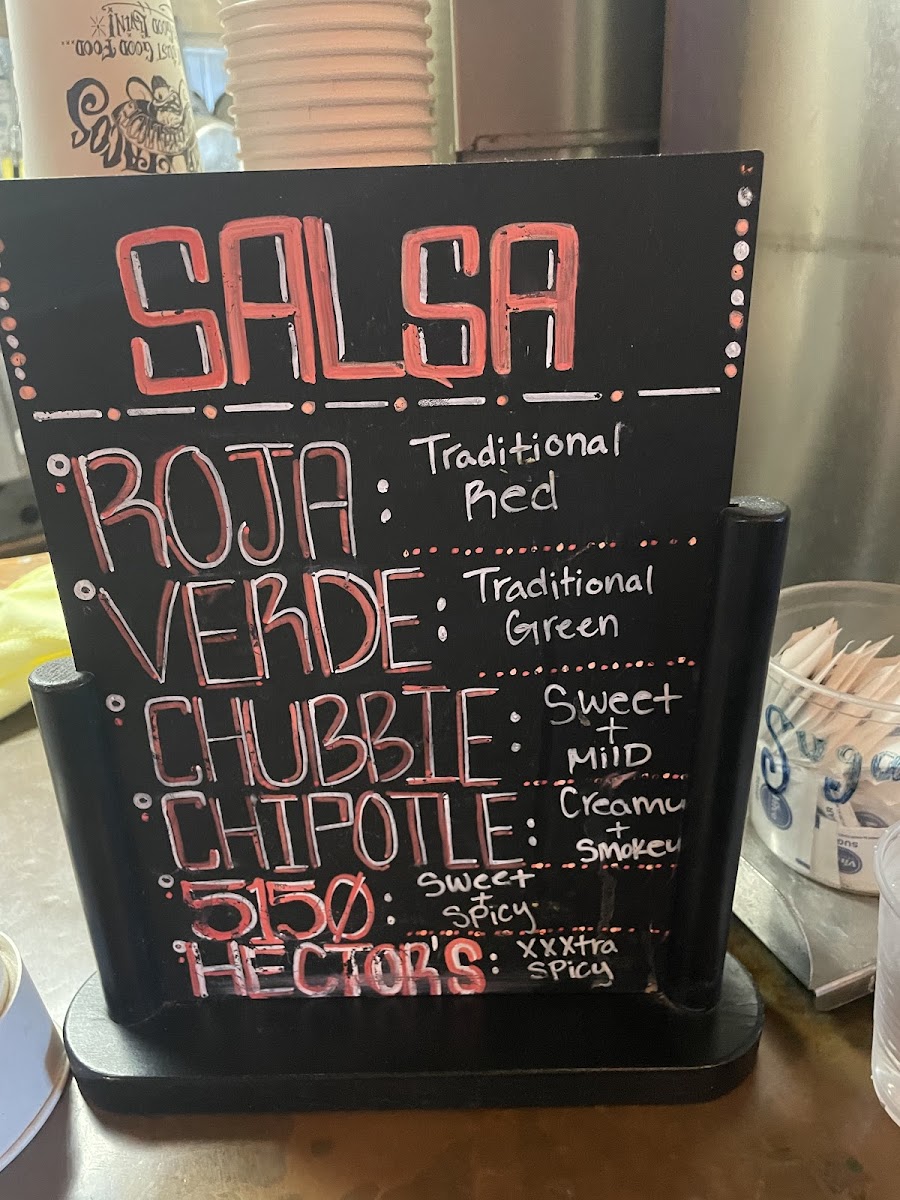 JUST GOOD FOOD...
GOOD LIVIN'!
TACOS
SALSA
ROJA: Traditional
Red
VERDE: Traditional
Green
CHUBBIE: Sweet
+
MilD
CHIPOTLE: Creamy
+
Smokey
5150: Sweet
+
Spicy
HECTOR'S: XXXtra
SPicy
Suga